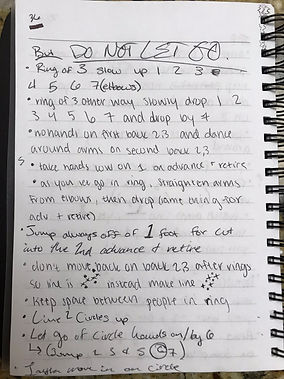 36
But DO NOT LET GO.
• Ring of 3 slow up 1 2 3
4 5 6 7 (elbows)
• ring of 3 other way slowly drop 1 2
3 4 5 6 7 and drop by 4
• no hands on first back 23 and dance
around arms on second back 23
• take hands low on 1 on advance + retire
• as you go in ring, straighten arms
from elbows, then drop (same thing for
adv + retire)
• Jump always off of 1 foot for cut
into the 2nd advance & retire
• don't move back on back 23 after rings
so ring is instead make line
• Keep space between people in ring
• Line 2 Circles up
• Let go of Circle hands on/by 6
↳ (Jump 2 3 4 5 6 7)
move in on circle